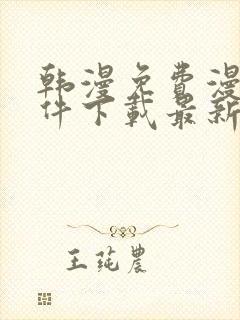 韩漫免费漫
件下载最新
王莼农